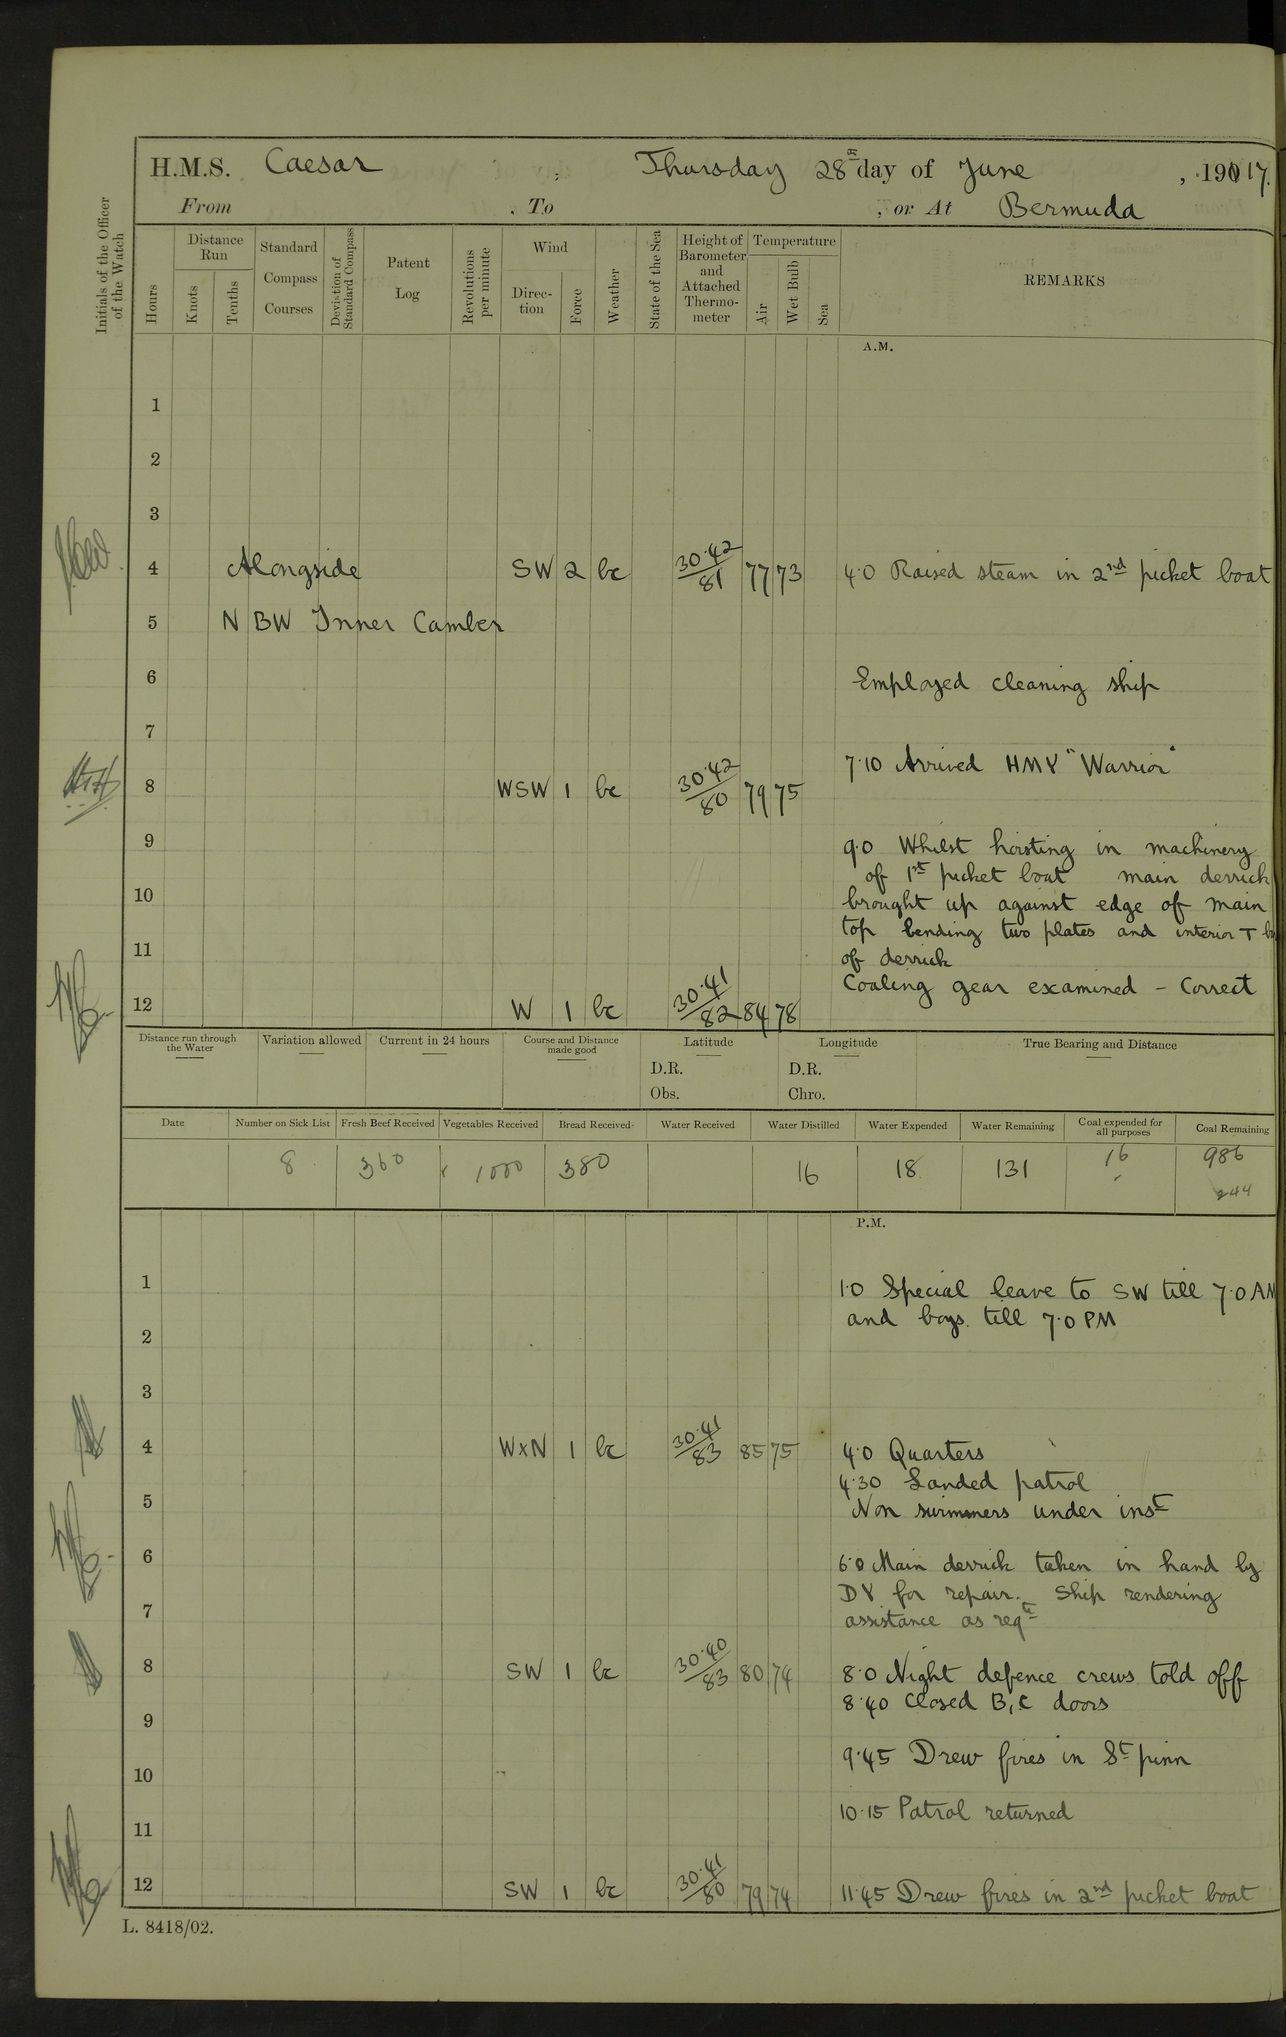 H.M.S. Caesar, Thursday 28th day of June, 19017.
From , To , or At Bermuda
Initials of the Officer of the Watch
Hours
Distance Run
Knots
Tenths
Standard Compass Courses
Deviation of Standard Compass
Patent Log
Revolutions per minute
Wind
Direction
Force
Weather
State of the Sea
Height of Barometer and Attached Thermometer
Temperature
Air
Wet Bulb
Sea
REMARKS
A.M.
1
2
3
4 Alongside SW 2 bc 30.42/81 77 73 4.0 Raised steam in 2nd picket boat
5 N BW Inner Camber
6 Employed cleaning ship
7
7.10 Arrived HMY "Warrior"
8 WSW 1 bc 30.42/80 79 75
9 9.0 Whilst hoisting in machinery
of 1st picket boat main derrick
10 brought up against edge of main
top bending two plates and interior T
11 of derrick
Coaling gear examined - Correct
12 W 1 bc 30.41/82 84 78
Distance run through the Water
Variation allowed
Current in 24 hours
Course and Distance made good
Latitude
D.R.
Obs.
Longitude
D.R.
Chro.
True Bearing and Distance
Date Number on Sick List Fresh Beef Received Vegetables Received Bread Received Water Received Water Distilled Water Expended Water Remaining Coal expended for all purposes Coal Remaining
8 360 1000 380 16 18 131 16 986
244
P.M.
1 1.0 Special leave to SW till 7.0 AM
and boys till 7.0 PM
2
3
4 WxN 1 bc 30.41/83 85 75 4.0 Quarters
4.30 Landed patrol
5 Non swimmers under inst
6 6.0 Main derrick taken in hand by
DY for repair. Ship rendering
7 assistance as reqd
8 SW 1 bc 30.40/83 80 74 8.0 Night defence crews told off
8.40 Closed B, C doors
9
9.45 Drew fires in St pinn
10
10.15 Patrol returned
11
12 SW 1 bc 30.41/80 79 74 11.45 Drew fires in 2nd picket boat
L. 8418/02.